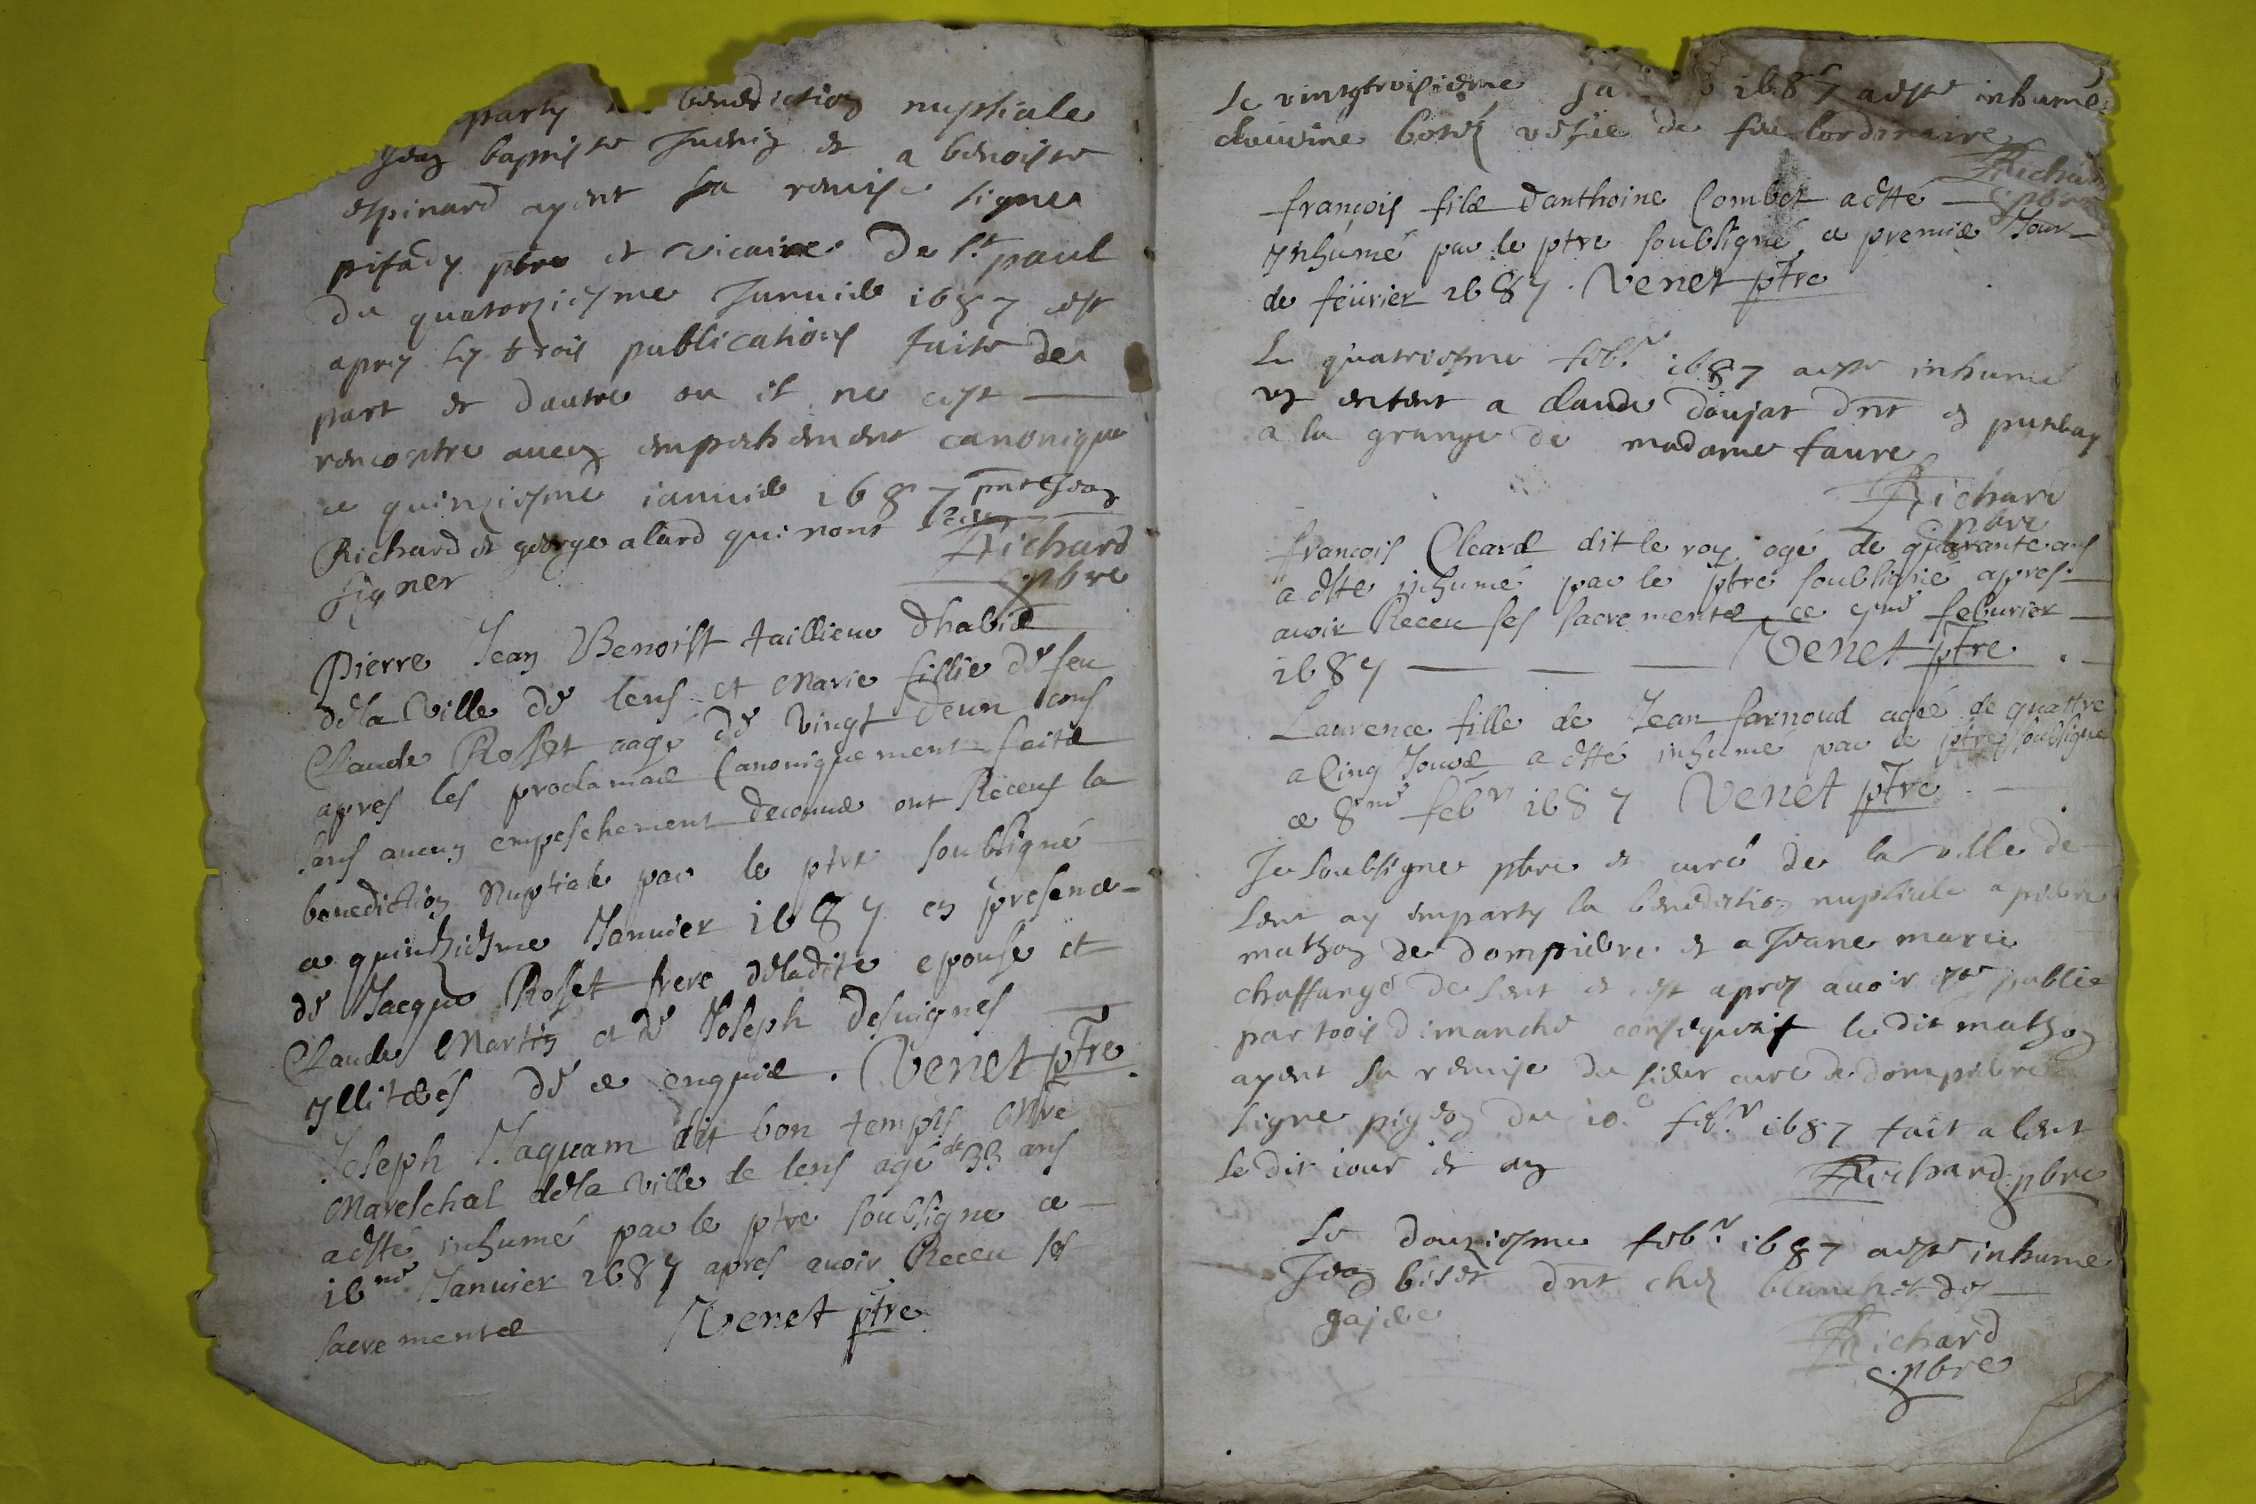 party benediction nuptiale
Jean baptiste et a benoiste
espinard ayent sa remise signee
pbre et vicaire De St paul
Du quatorziesme Januiele 1687 est
apres les trois publications faite de
part et dautre ou il ne cest
rencontre aucun empechement canonique
ce quinziesme ianuiele 1687 pnts Jean
Richard et george alard qui nont sceu
signer Richard pbre
Pierre Jean Benoist taillieur dhabie
dela Ville de lens et Marie fillie de feu
Claude Rosset aagé de vingt deux ans
apres les proclamae Canoniquement faite
sans aucun empeschement deconnue ont Receus la
benediction Nuptiale par le ptre soubsigné
ce quinziesme Januier 1687 en presence
de Jacque Rosset frere deladite espouse et
Claude Martin et de Joseph Desuignes
yllitéés de ce enquie. Venet ptre
Joseph Jaquam dit bon temps Mtre
Mareschal dela ville de lens agé de 33 ans
a esté inhumé par le ptre soubsigne ce
16me Januier 1687 apres auoir Receu ses
sacremente Venet ptre
Le vingtroisiesme Ja 1687 a este inhumé
claudine vesue de feu lordinaire
Richard
pbre
françois file Danthoine Combet a esté
ynhumé par le ptre soubsigné ce premie Jour
de feurier 1687. Venet ptre
Le quatriesme febr 1687 a este inhumé
un enfent a claude doujat dnt
a la grange de madame faure
Richard
pbre
françois Cleard dit le roy agé de quarante ans
a este inhumé par le ptre soubsigné apres
auoir Receu ses sacremente ce feburier
1687 Venet ptre
Laurence fille de Jean farnoud agée de quattre
a Cinq Joure a esté inhumé par le ptre soubsigne
ce 8me febr 1687 Venet ptre
Je soubsigne pbre et curé de la ville de
Lent ay imparty la benediction nuptiale a piere
mathon de dompiere et a Jeane marie
chaffange de Lent et est apres auoir este publie
par trois dimanche consequtif le dit mathon
ayent sa remise du sieur cure de dompiere
signe pigeon du 10e febr 1687 fait a lent
le dit iour et an Richard pbre
Le douziesme febr 1687 a este inhume
Jean biset dnt chez blanchet des
gajele
Richard
pbre